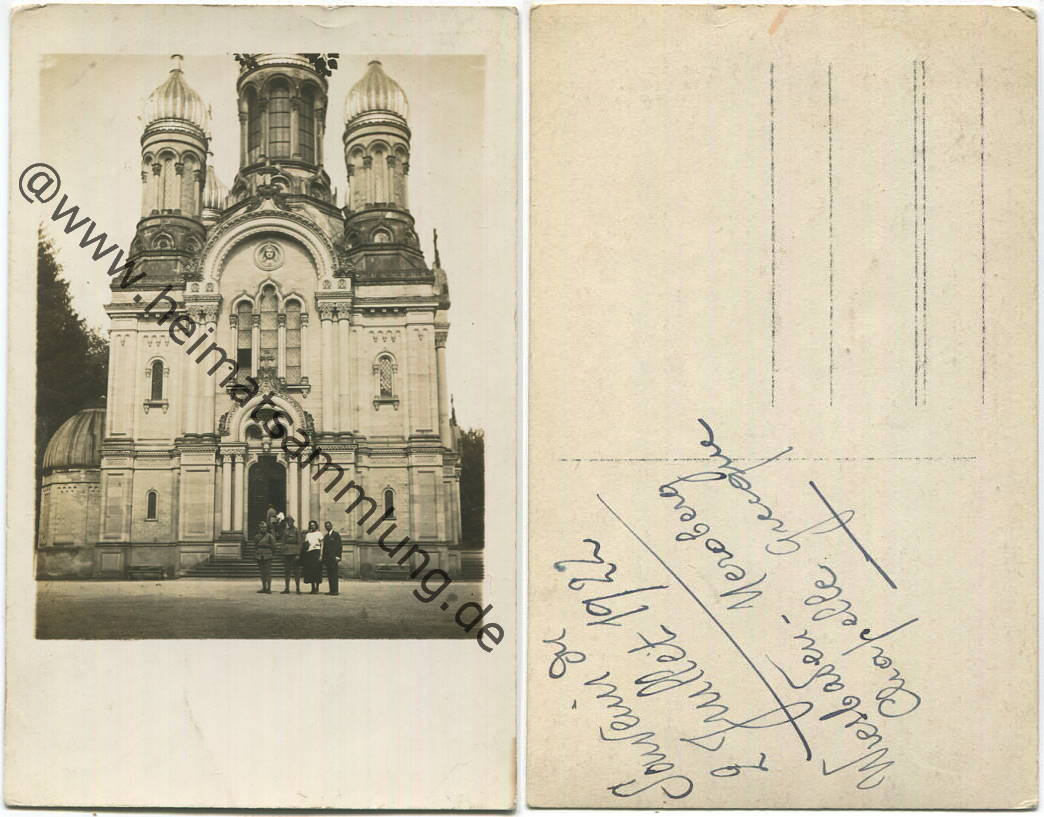 @www.heimatsammlung.de
Souvenir du
2 Juillet 1922
Wiesbaden - Neroberg
Chapelle Grecque